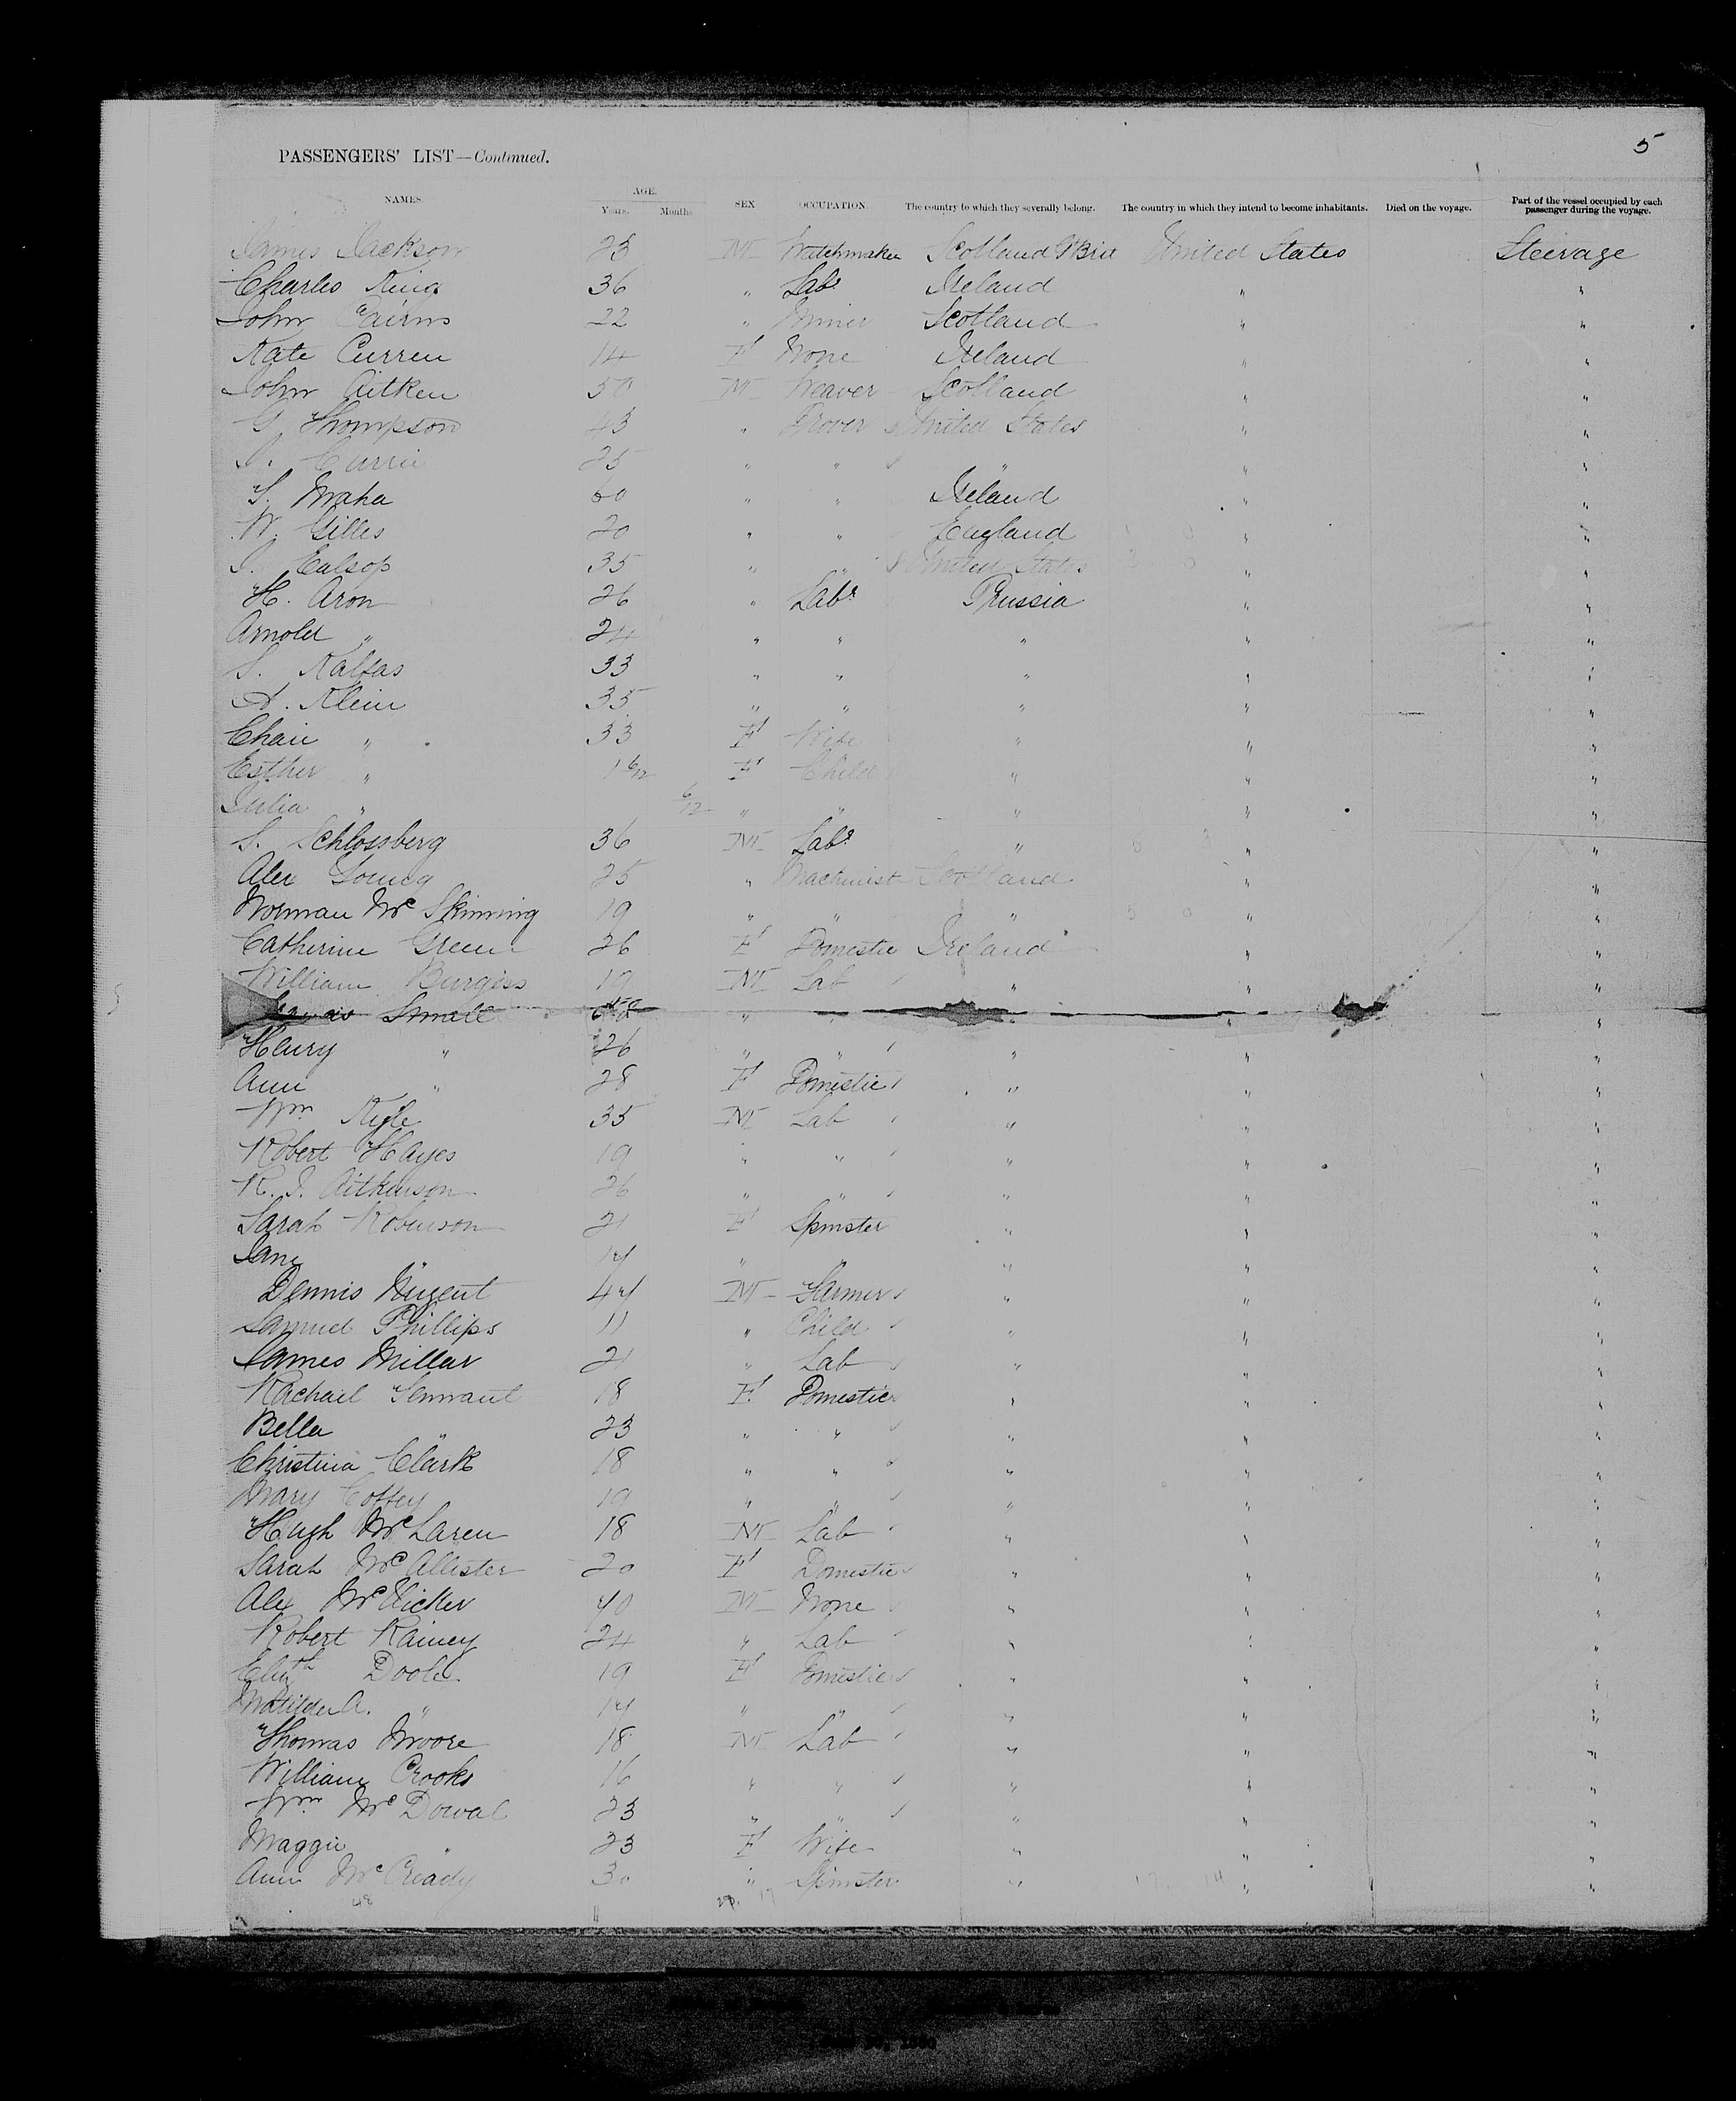 5
PASSENGERS' LIST—Continued.
NAMES. AGE. Years. Months. SEX OCCUPATION. The country to which they severally belong. The country in which they intend to become inhabitants. Died on the voyage. Part of the vessel occupied by each passenger during the voyage.
James Jackson 23 M Watchmaker Scotland GBrit United States Steerage
Charles King 36 " Labr Ireland " "
John Cairns 22 " Miner Scotland " "
Kate Curren 14 F None Ireland " "
John Aitken 50 M Weaver Scotland " "
G. Thompson 43 " Drover United States " "
J. Currie 25 " " " " "
T. Maha 60 " " Ireland " "
W. Gilles 20 " " England " "
J. Ealsop 35 " " United States " "
H. Aron 26 " Labr Prussia " "
Arnold " 24 " " " " "
S. Kalfas 33 " " " " "
A. Klein 35 " " " " "
Chaie " 33 F Wife " " "
Esther " 1 6/12 F Child " " "
Julia " 6/12 " " " " "
S. Schlossberg 36 M Labr " " "
Alex Young 25 " Machinist Scotland " "
Norman Mc Skimming 19 " " " " "
Catherine Green 26 F Domestic Ireland " "
William Burgess 19 M Lab " " "
Small " " "
Henry " 26 " " " " "
Ann " 28 F Domestic " " "
Wm Kyle 35 M Lab " " "
Robert Hayes 19 " " " " "
R. J. Aitkinson 26 " " " " "
Sarah Robinson 21 F Spinster " " "
Jane " 17 " " " " "
Dennis Nugent 47 M Farmer " " "
Samuel Phillips 11 " Child " " "
James Millar 21 " Lab " " "
Rachael Tennant 18 F Domestic " " "
Bella " 23 " " " " "
Christina Clark 18 " " " " "
Mary Coffey 19 " " " " "
Hugh McLaren 18 M Lab " " "
Sarah McAllister 20 F Domestic " " "
Alex McVicker 40 M None " " "
Robert Rainey 24 " Lab " " "
Elizth Doole 19 F Domestic " " "
Matilda A. " 17 " " " " "
Thomas Moore 18 M Lab " " "
William Crooks 16 " " " " "
Wm McDowal 23 " " " " "
Maggie " 23 F Wife " " "
Ann McCready 30 " Spinster " " "
48